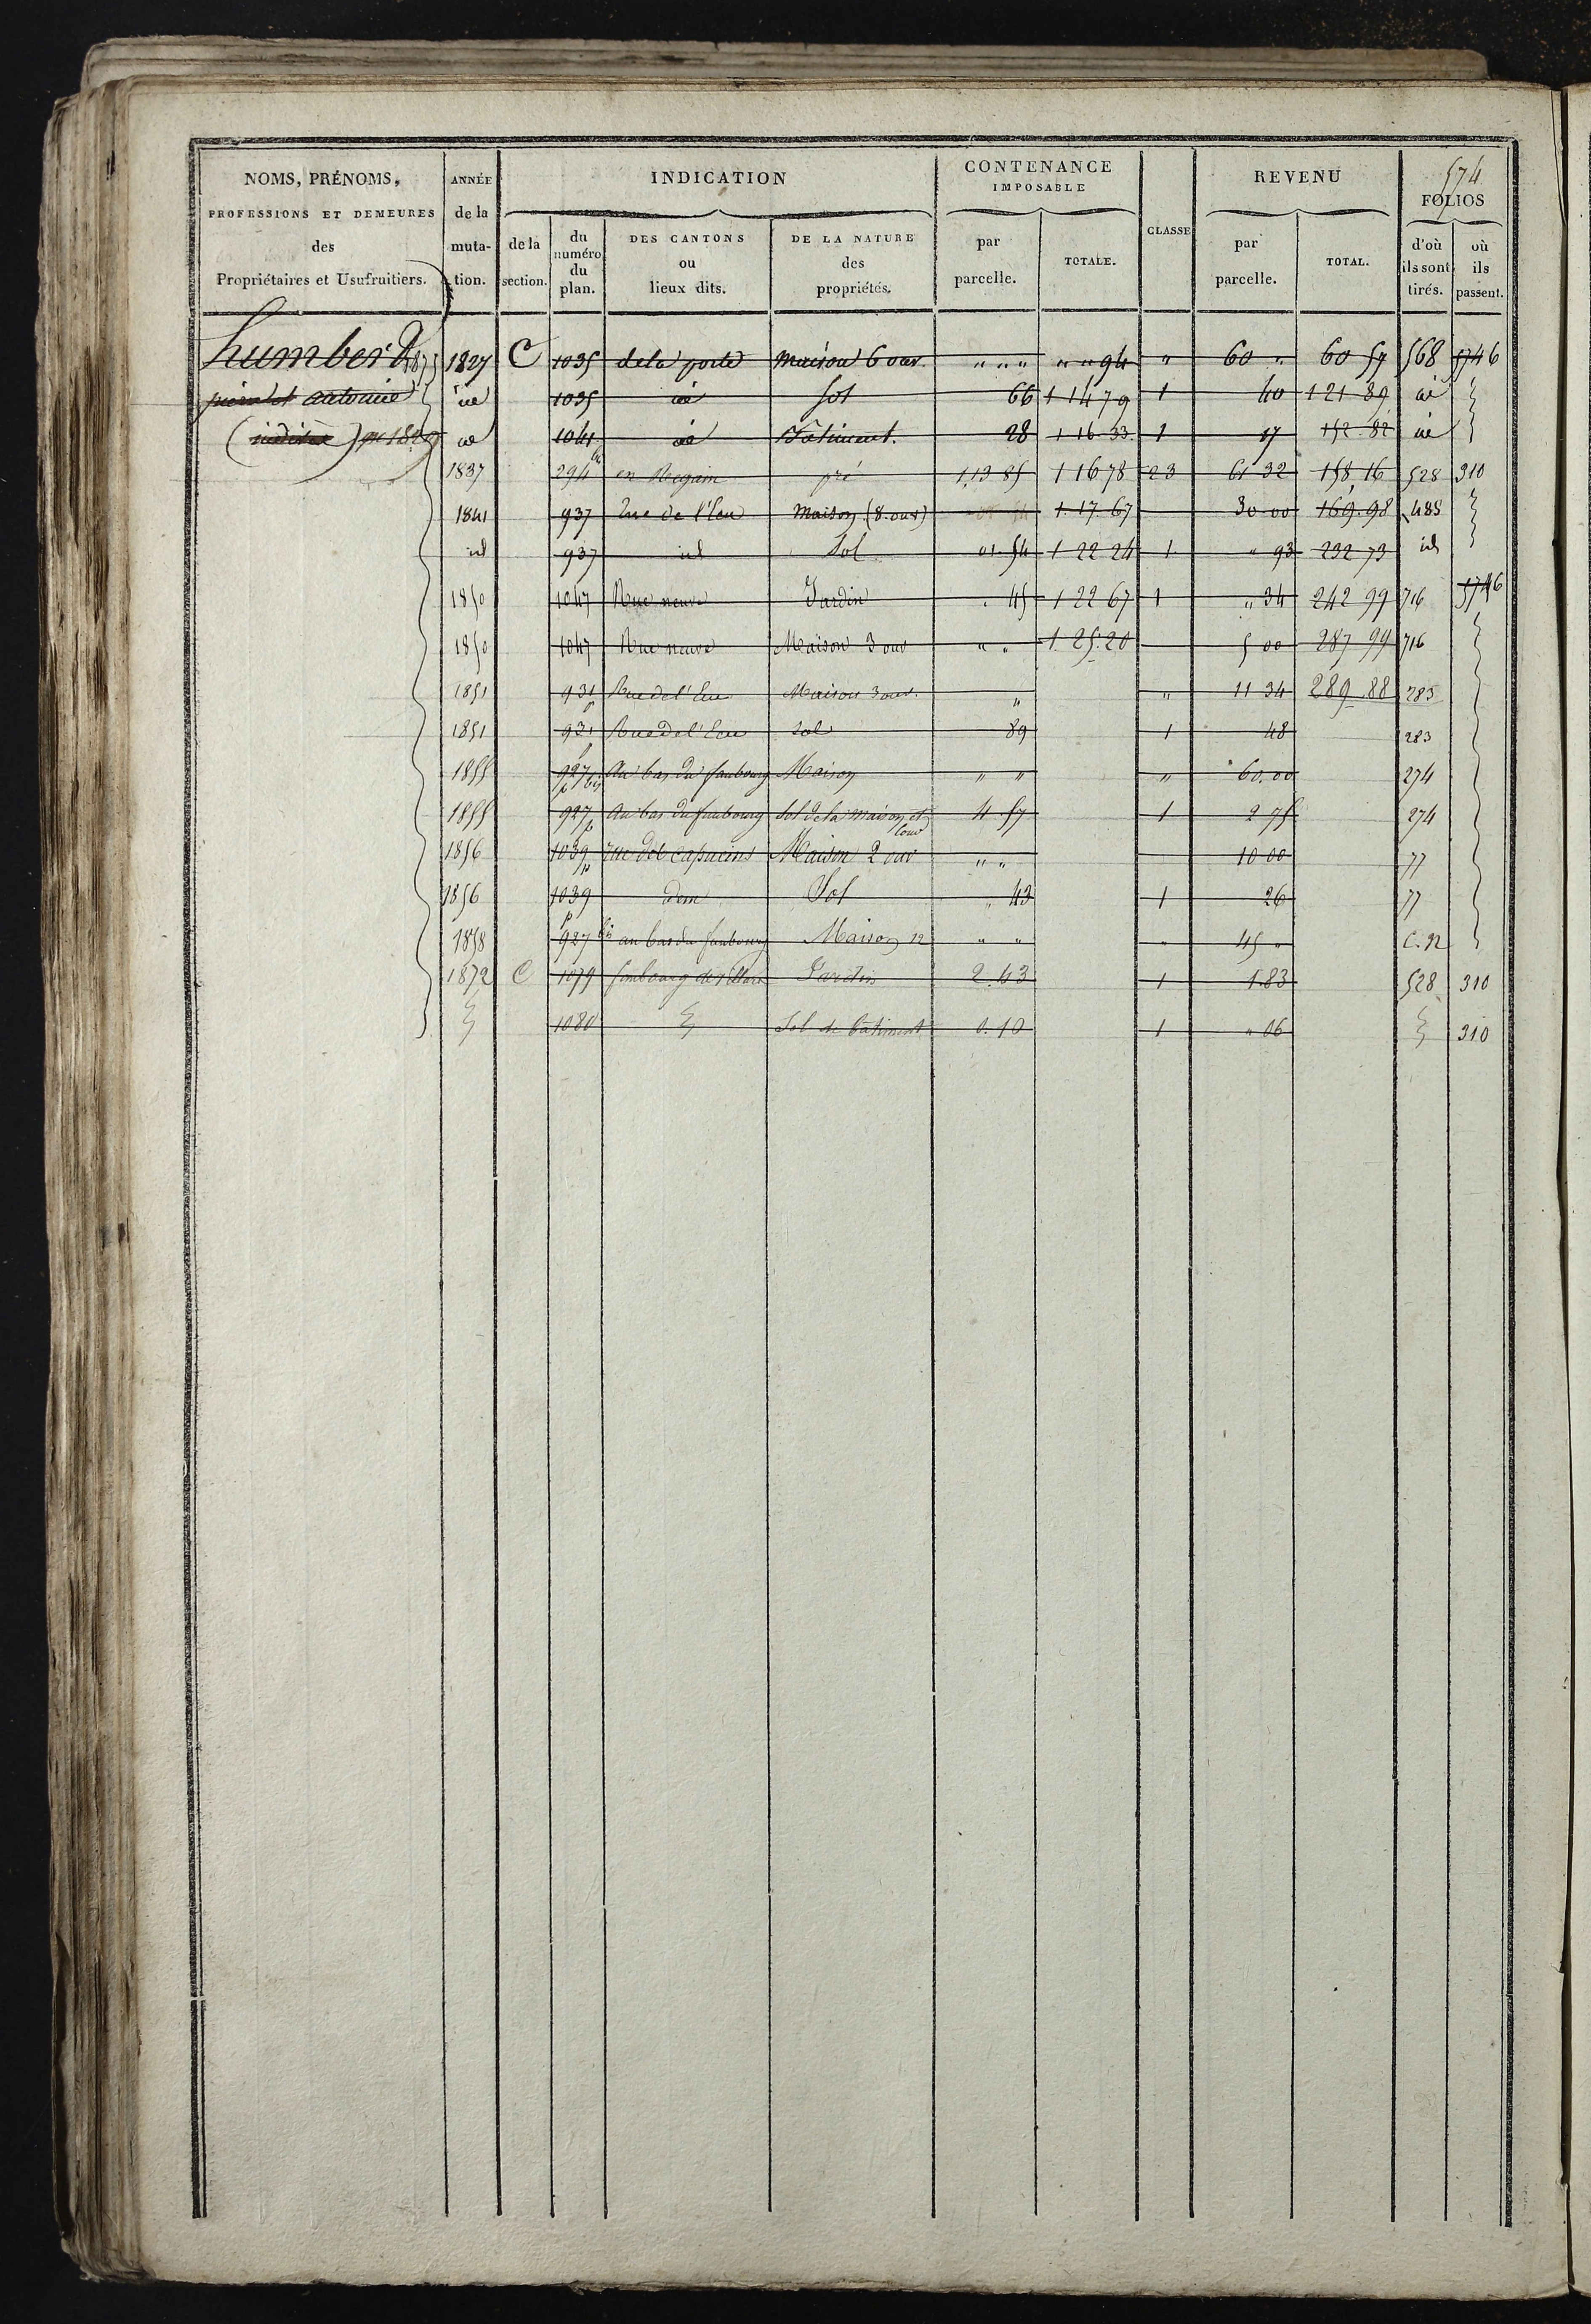 574
NOMS, PRÉNOMS, ANNÉE INDICATION CONTENANCE IMPOSABLE CLASSE REVENU FOLIOS
PROFESSIONS ET DEMEURES des Propriétaires et Usufruitiers. de la mutation. de la section. du numéro du plan. DES CANTONS ou lieux dits. DE LA NATURE des propriétés. par parcelle. TOTALE. par parcelle. TOTAL. d'où ils sont tirés. où ils passent.
humbert 1827 C 1035 de la porte maison 6 ouv. " " " " " 94 " 60 " 60 57 568 5746
antoine id 1035 id sol 66 1 14 79 1 40 121 89 id
id 1041 id Bâtiment. 28 1 16 33 1 17 152 82 id
1837 294 en Regain pré 1,13 85 1 16 78 23 61 32 158,16 528 310
1841 937 Rue de l'Eau Maison (8. ouv) 1. 17. 67 30 00 169. 98 485
id 937 id Sol 01. 54 1 22 24 1 " 93 232 73 id
1850 1047 Rue neuve Jardin . 45 1 22 67 1 " 34 242 99 716 5746
1850 1047 Rue neuve Maison 3 ouv " " 1. 25. 20 5 00 287 99 716
1851 931 p Rue de l'Eau Maison 3 ouv. " " 11 34 289. 88 283
1851 931 p Rue de l'Eau sol 89 1 48 283
1855 927 p bis Au bas du faubourg Maison " " " 60. 00 274
1855 927 p Au bas du faubourg Sol de la maison et Cour 4 57 1 2 75 274
1856 1039 p rue des Capucins Maison 2 ouv " " 10 00 77
1856 1039 p dem Sol " 43 1 26 77
1858 927 bis au bas du faubourg Maison 12 " " " 45 " C. 92
1872 C 1079 faubourg de Jardin 2. 43 1 1. 83 528 310
1080 Sol de bâtiment 0. 10 1 " 06 310